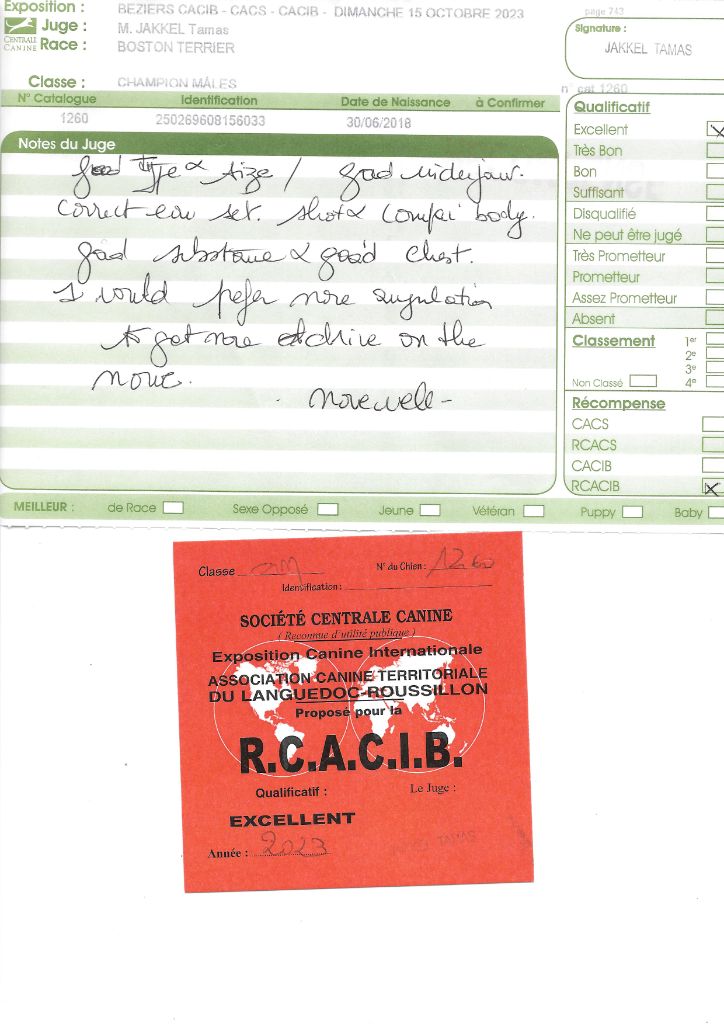 Exposition : BEZIERS CACIB - CACS - CACIB - DIMANCHE 15 OCTOBRE 2023
page 743
CENTRALE CANINE
Juge : M. JAKKEL Tamas
Race : BOSTON TERRIER
Signature :
JAKKEL TAMAS
Classe : CHAMPION MÂLES
n° cat 1260
N° Catalogue Identification Date de Naissance à Confirmer
1260 250269608156033 30/06/2018
Notes du Juge
good type & size / good underjaw.
correct ear set. short & compact body.
good substance & good chest.
I would prefer more angulation
to get more drive on the
move.
Move well -
Qualificatif
Excellent
Très Bon
Bon
Suffisant
Disqualifié
Ne peut être jugé
Très Prometteur
Prometteur
Assez Prometteur
Absent
Classement 1er
2e
3e
Non Classé 4e
Récompense
CACS
RCACS
CACIB
RCACIB
MEILLEUR : de Race Sexe Opposé Jeune Vétéran Puppy Baby
Classe N° du Chien : 1260
Identification :
SOCIÉTÉ CENTRALE CANINE
( Reconnue d'utilité publique )
Exposition Canine Internationale
ASSOCIATION CANINE TERRITORIALE
DU LANGUEDOC-ROUSSILLON
Proposé pour la
R.C.A.C.I.B.
Qualificatif : Le Juge :
EXCELLENT
Année : 2023
JAKKEL TAMAS